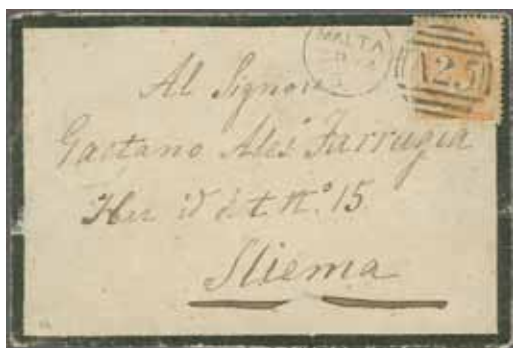 MALTA
A25
Al Signore
Gaetano Ales. Farrugia
N.º 15
Sliema